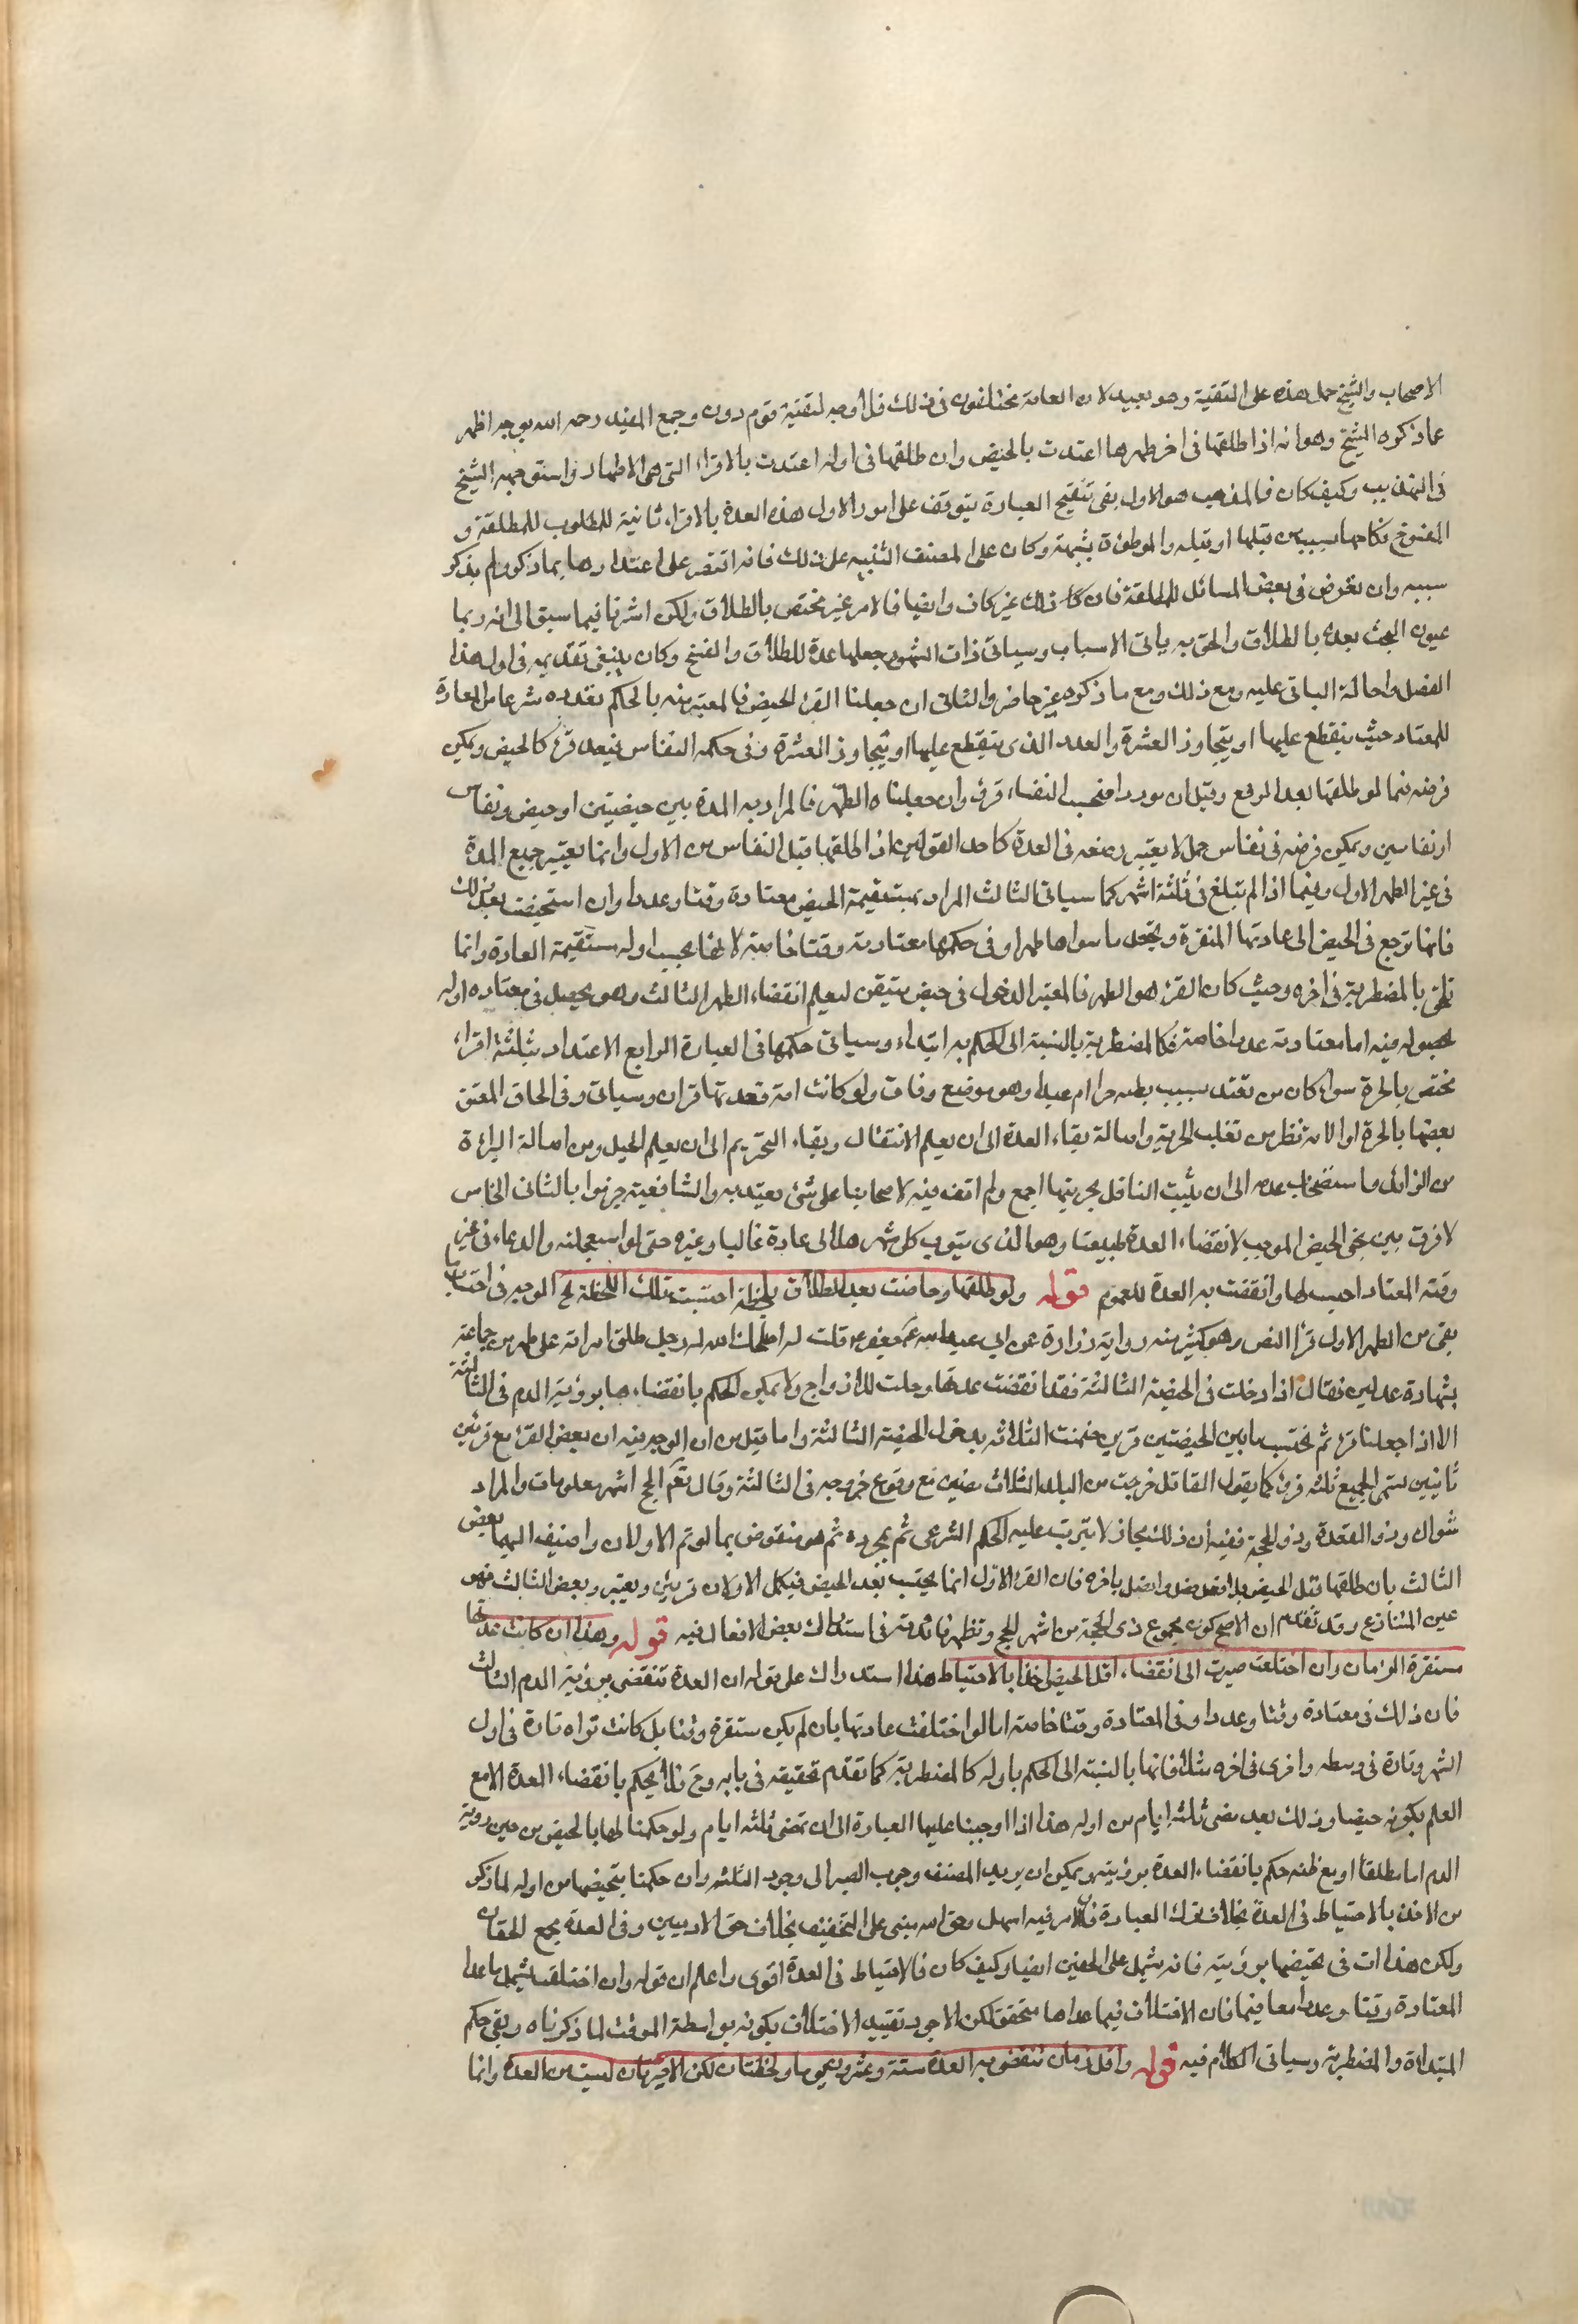 الاصحاب والشيخ حمل هذه على التقية وهو بعيد لان العامة مختلفون في ذلك فلا وجه لتقية قوم دون وجمع المفيد رحمه الله بوجه اظهر
عما ذكره الشيخ وهو انه اذا طلقها في اخر طهرها اعتدت بالحيض وان طلقها في اوله اعتدت بالاقراء التي هي الاطهار واستوجهه الشيخ
في التهذيب وكيف كان فالمذهب هو الاول بقي تنقيح العبارة يتوقف على امور الاول هذه العدة بالاقراء ثانية للمطلوب للمطلقة و
المفسوخ نكاحها بسبب من قبلها او قبله والموطؤة بشبهة وكان على المصنف التنبيه على ذلك فانه اقتصر على اعتدادها بما ذكر ولم يذكر
سببه وان تعرض في بعض المسائل للمطلقة فان ذلك غير كاف وايضا فالامر غير مختص بالطلاق ولكن اشرنا فيما سبق الى انه ربما
عنون البحث بعده بالطلاق والحق به باقي الاسباب وسياتي ذات الشهور جعلها عدة للطلاق والفسخ وكان ينبغي تقديمه في اول هذا
الفصل واحالة الباقي عليه ومع ذلك ومع ما ذكره غير حاضر والثاني ان جعلنا القرء الحيض فالمعتبر منه بالحكم بعدده شرعا من العادة
للمعتاد حيث ينقطع عليها او يتجاوز العشرة والعدد الذي ينقطع عليها او يتجاوز العشرة وفي حكمه النفاس فيعد قرء كالحيض ويمكن
فرضه فيما لو طلقها بعد الوضع وقبل ان يرى دما فتحسب النفساء قرء وان جعلناه الطهر فالمراد به المدة بين حيضتين او حيض ونفاس
او نفاسين ويمكن فرضه في نفاس حمل لا يعتبر وضعه في العدة كاحد القولين اذا طلقها قبل النفاس من الاول وانما يعتبر جميع المدة
في غير الطهر الاول وفيما اذا لم تبلغ في ثلثة اشهر كما سياتي الثالث المراد بمستقيمة الحيض معتادة وقتا وعددا وان استحيضت بعد ذلك
فانها ترجع في الحيض الى عادتها المتقررة وتجعل ما سواها طهرا وفي حكمها معتادته وقتا خاصة لانها بحسب اوله مستقيمة العادة وانما
تلحق بالمضطربة في اخره وحيث كان القرء هو الطهر فالمعتبر الدخول في حيض متيقن ليعلم انقضاء الطهر الثالث وهو يحصل في معتاده اوله
فيه اما معتادته عددا خاصة فكالمضطربة بالنسبة الى الحكم به ابتداء وسياتي حكمها في العبارة الرابع الاعتداد بثلثة اقراء
مختص بالحرة سواء كان من تعتد بسبب حرا ام عبدا وهو موضع وفاق ولو كانت امة فعدتها قران وسياتي وفي الحاق المعتق
بعضها بالحرة او الامة نظر من تغلب الحرية واصالة بقاء العدة الى ان يعلم الانتقال وبقاء التحريم الى ان يعلم الحيل ومن اصالة البراءة
من الزائد واستصحاب عدمه الى ان يثبت الناقل بحريتها اجمع ولم اقف فيه لاصحابنا على شئ يعتد به والشافعية جزموا بالثاني الخامس
لا فرق بين مجئ الحيض الموجب لانقضاء العدة طبيعتا وهو الذي ينوب كل شهر هلالي عادة غالبا وغيره حتى لو استعجلته والدعاء في غير
وقته المعتاد احتسب لها وانقضت به العدة للعموم قوله ولو طلقها وحاضت بعد الطلاق بلحظة احتسبت تلك اللحظة لح الوجه في احتسابها
بقى من الطهر الاول قرءا النص وهو كثير منه رواية زرارة عن ابي جعفر قلت له اصلحك الله رجل طلق امراته على طهر من جماعة
بشهادة عدلين فقال اذا دخلت في الحيضة الثالثة فقد انقضت عدتها وحلت للازواج ولا يمكن الحكم بانقضاءها برؤية الدم في الثالثة
الا اذا جعلنا قرء ثم نحتسب ما بين الحيضتين قرين فتمت الثلاثة بدخول الحيضة الثالثة واما قيل من ان الوجه فيه ان بعض القرء مع قرئين
ثانيين يسمى الجميع ثلثة قروء كما يقول القائل خرجت من البلد الثلاث مضين مع وقوع خروجه في الثالثة وقال تعم الحج اشهر معلومات والمراد
شوال وذو القعدة وذو الحجة ففيه ان ذلك مجاز لا يترتب عليه الحكم الشرعي ثم بمجرده ثم هو منقوض بما لو تم الاولان واضيف اليهما بعض
الثالث بان طلقها قبل الحيض بلا فصل واتصل باخره فان القرء الاول انما يحتسب بعد الحيض فيكمل الاولان قرئين ويعتبر وبعض الثالث فهو
عين المتنازع وقد تقدم ان الاصح كون مجموع ذي الحجة من اشهر الحج وتظهر فائدته في استدراك بعض الافعال فيه قوله وهذا ان كانت عدتها
مستقرة الزمان وان اختلفت صبرت الى انقضاء اقل الحيض اخذا بالاحتياط هذا استدراك على قوله ان العدة تنقضي برؤية الدم الثالث
فان ذلك في معتادة وقتا وعددا وفي المعتادة وقتا خاصة اما لو اختلفت عادتها بان لم يكن مستقرة وقتا بل كانت تراه تارة في اول
الشهر وتارة في وسطه واخرى في اخره مثلا فانها بالنسبة الى الحكم باوله كالمضطربة كما تقدم تحقيقه في بابه وح فلا يحكم بانقضاء العدة الا مع
العلم بكونه حيضا وذلك بعد مضى ثلثة ايام من اوله هذا اذا اوجبنا عليها العبادة الى ان تمضى ثلثة ايام ولو حكمنا لها بالحيض من حين رؤية
الدم اما مطلقا او مع ظنه حكم بانقضاء العدة برؤيته ويمكن ان يريد المصنف وجوب الصبر الى وجود الثلثة وان حكمنا بتحيضها من اوله لما ذكر
من الاخذ بالاحتياط في العدة بخلاف ترك العبادة فان الامر فيه اسهل وحق الله مبنى على التخفيف بخلاف حق الادميين وفي العدة يجمع الحقان
ولكن هذا ات في تحيضها برؤيته فانه يشمل على الحقين ايضا وكيف كان فالاحتياط في العدة اقوى واعلم ان قوله وان اختلفت يشمل ما عدا
المعتادة وقتا وعددا معا فيهما فان الاختلاف فيما عداها متحقق لكن الاجود تقييد الاختلاف بكونه بواسطة الوقت لما ذكرناه وبقي حكم
المبتداة والمضطربة وسياتي الكلام فيه قوله واقل زمان تنقضي به العدة ستة وعشرون يوما ولحظتان لكن الاخيرتان ليست من العدة وانما